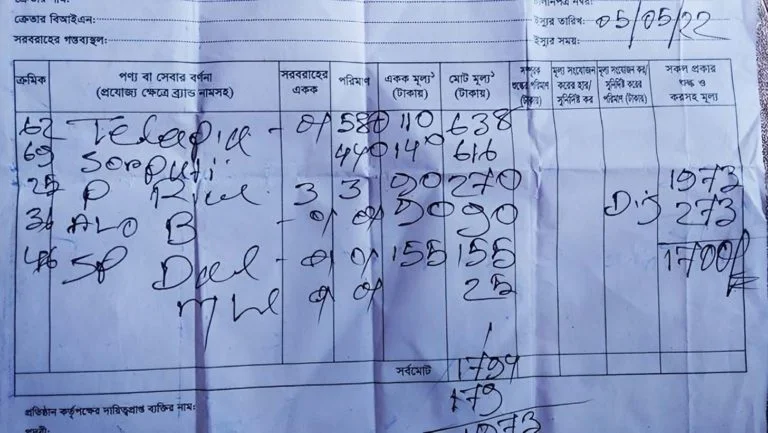 ক্রেতার বিআইএন:
সরবরাহের গন্তব্যস্থল:
ইস্যুর তারিখ: 05/05/22
ইস্যুর সময়:
ক্রমিক পণ্য বা সেবার বর্ণনা (প্রযোজ্য ক্ষেত্রে ব্র্যান্ড নামসহ) সরবরাহের একক পরিমাণ একক মূল্য১ (টাকায়) মোট মূল্য১ (টাকায়) সম্পূরক শুল্কের পরিমাণ (টাকায়) মূল্য সংযোজন করের হার/ সুনির্দিষ্ট কর মূল্য সংযোজন কর/ সুনির্দিষ্ট করের পরিমাণ (টাকায়) সকল প্রকার শুল্ক ও করসহ মূল্য
62 Telapia 580 110 638
69 Sorputi 440 140 616
P Rice 3 3 90 270 1973
ALO B 90 90 Dis 273
SP Dal 155 155 1700
25
সর্বমোট 1794
179
1973
প্রতিষ্ঠান কর্তৃপক্ষের দায়িত্বপ্রাপ্ত ব্যক্তির নাম:
পদবী: